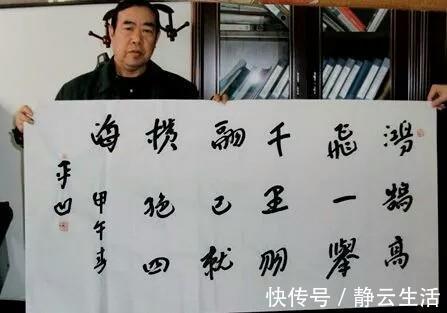 鸿鹄高
飛一舉
千里羽
翮已就
横绝四
海 甲午
平凹
快传号／静云生活